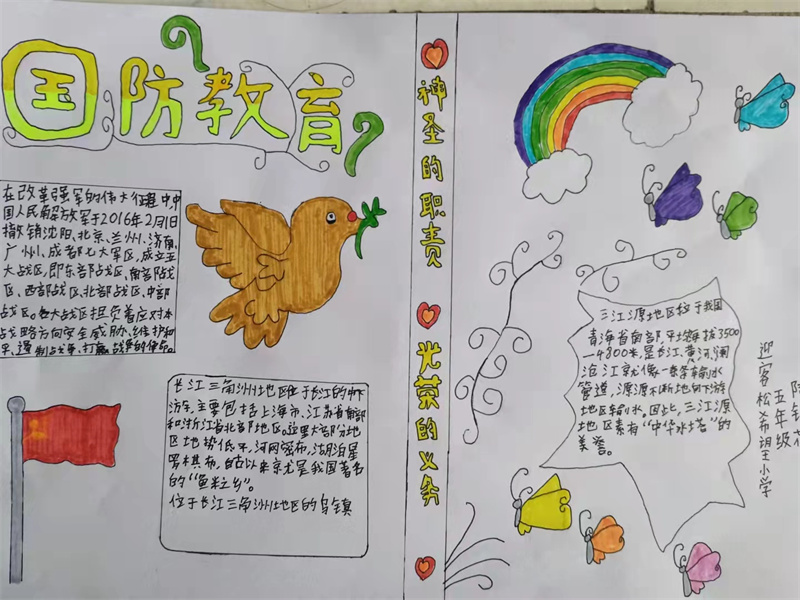 国防教育
在改革强军的伟大征程中中
国人民解放军于2016年2月1日
撤销沈阳、北京、兰州、济南、
广州、成都七大军区，成立五
大战区，即东部战区、南部战
区、西部战区、北部战区、中部
战区。各大战区担负着应对本
战略方向安全威胁、维护和
平、遏制战争、打赢战争的使命。
长江三角洲地区位于长江的中下
游，主要包括上海市、江苏省南部
和浙江省北部地区。这里大部分地
区地势低平，河网密布，湖泊星
罗棋布，自古以来就是我国著名
的“鱼米之乡”。
位于长江三角洲地区的乌镇
神圣的职责
光荣的义务
三江源地区位于我国
青海省南部，平均海拔3500
—4800米，是长江、黄河、澜
沧江就像一条条输水
管道，源源不断地向下游
地区输水，因此，三江源
地区素有“中华水塔”的
美誉。
迎客松希望小学
五年级